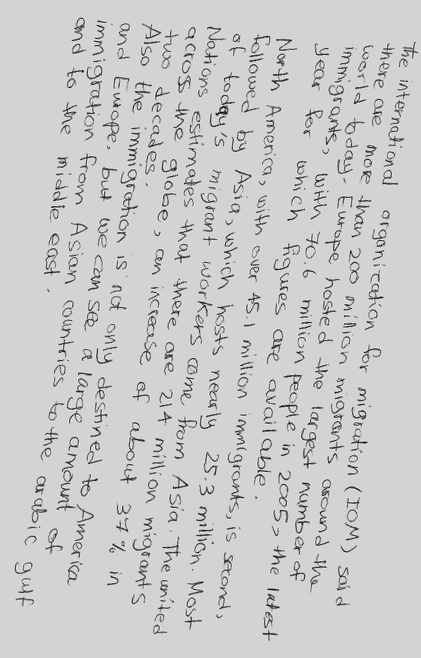 The international organization for migration (IOM) said
there are more than 200 million migrants around the
world today. Europe hosted the largest number of
immigrants, with 70.6 million people in 2005, the latest
year for which figures are available.
North America, with over 45.1 million immigrants, is second,
followed by Asia, which hosts nearly 25.3 million. Most
of today's migrant workers come from Asia. The united
Nations estimates that there are 214 million migrants
across the globe, an increase of about 37% in
two decades.
Also the immigration is not only destined to America
and Europe, but we can see a large amount of
immigration from Asian countries to the arabic gulf
and to the middle east.